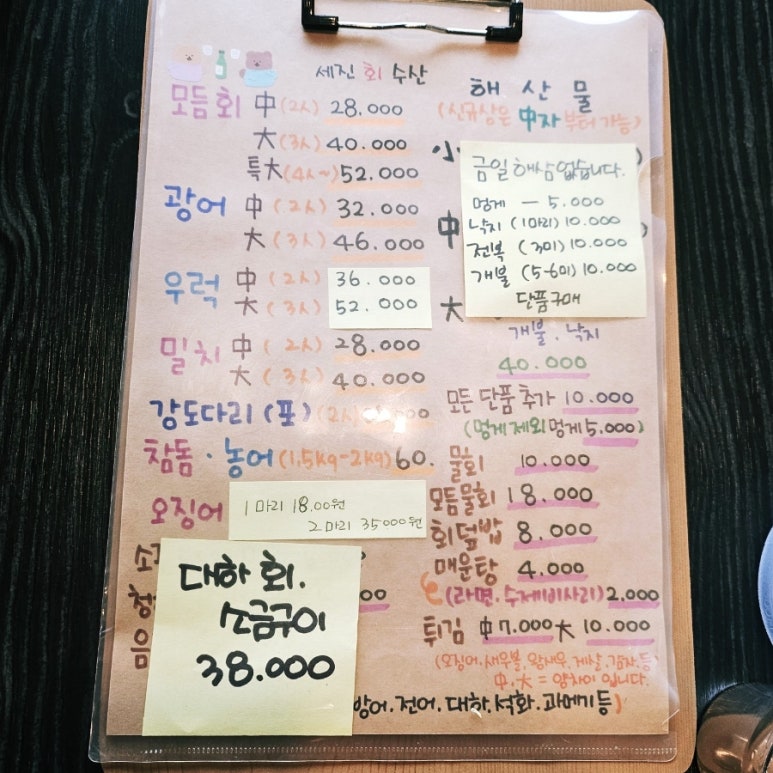 세진 회 수산
모듬회 中 (2人) 28.000
大 (3人) 40.000
특大 (4人~) 52.000
광어 中 (2人) 32.000
大 (3人) 46.000
우럭 中 (2人) 36.000
大 (3人) 52.000
밀치 中 (2人) 28.000
大 (3人) 40.000
강도다리 (포) (2人)
참돔 · 농어 (1.5kg-2kg) 60.
오징어 1마리 18.00원
2마리 35000원
대하 회.
소금구이
38.000
음
해 산 물
(신규상은 中자 부터 가능)
小
금일 해삼 없습니다.
멍게 — 5.000
낙지 (1마리) 10.000
전복 (3미) 10.000
개불 (5-6미) 10.000
단품구매
中
大
개불 . 낙지
40.000
모든 단품 추가 10.000
(멍게 제외 멍게 5.000)
물회 10.000
모듬물회 18.000
회덮밥 8.000
매운탕 4.000
(라면 . 수제비사리) 2.000
튀김 中 7.000 大 10.000
(오징어.새우볼.왕새우.게살.감자.등)
中.大 = 양차이 입니다.
방어.전어.대하.석화.과메기등)